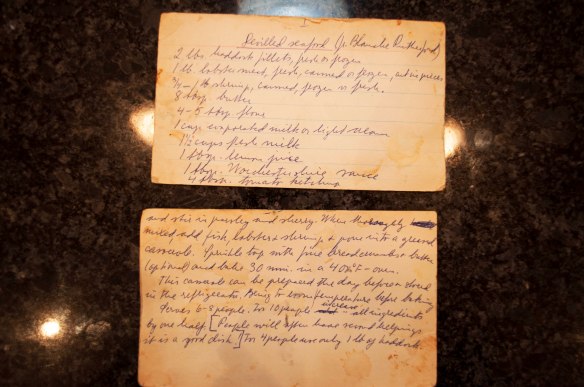 Devilled seafood (Jr. Blanche Rutherford)
2 lbs haddock fillets, fresh or frozen
1 lb. lobster meat, fresh, canned or frozen, cut in pieces
3/4 - 1 lb shrimp, canned, frozen or fresh.
8 tbsp. butter
4-5 tbsp. flour
cups evaporated milk or light cream
1 1/2 cups fresh milk
1 tbsp. lemon juice
1 tbsp. Worchestershire sauce
4 tbsp. tomato ketchup
and stir in parsley and sherry. When thoroughly
mixed, add fish, lobster & shrimp, & pour into a greased
casserole. Sprinkle top with fine breadcrumbs & butter
(optional) and bake 30 min. in a 400°F oven.
This casserole can be prepared the day before & stored
in the refrigerator. Bring to room temperature before baking
Serves 6-8 people. For 10 people increase all ingredients
by one half. [People will often have second helpings
it is a good dish.] For 4 people use only 1 lb of haddock.